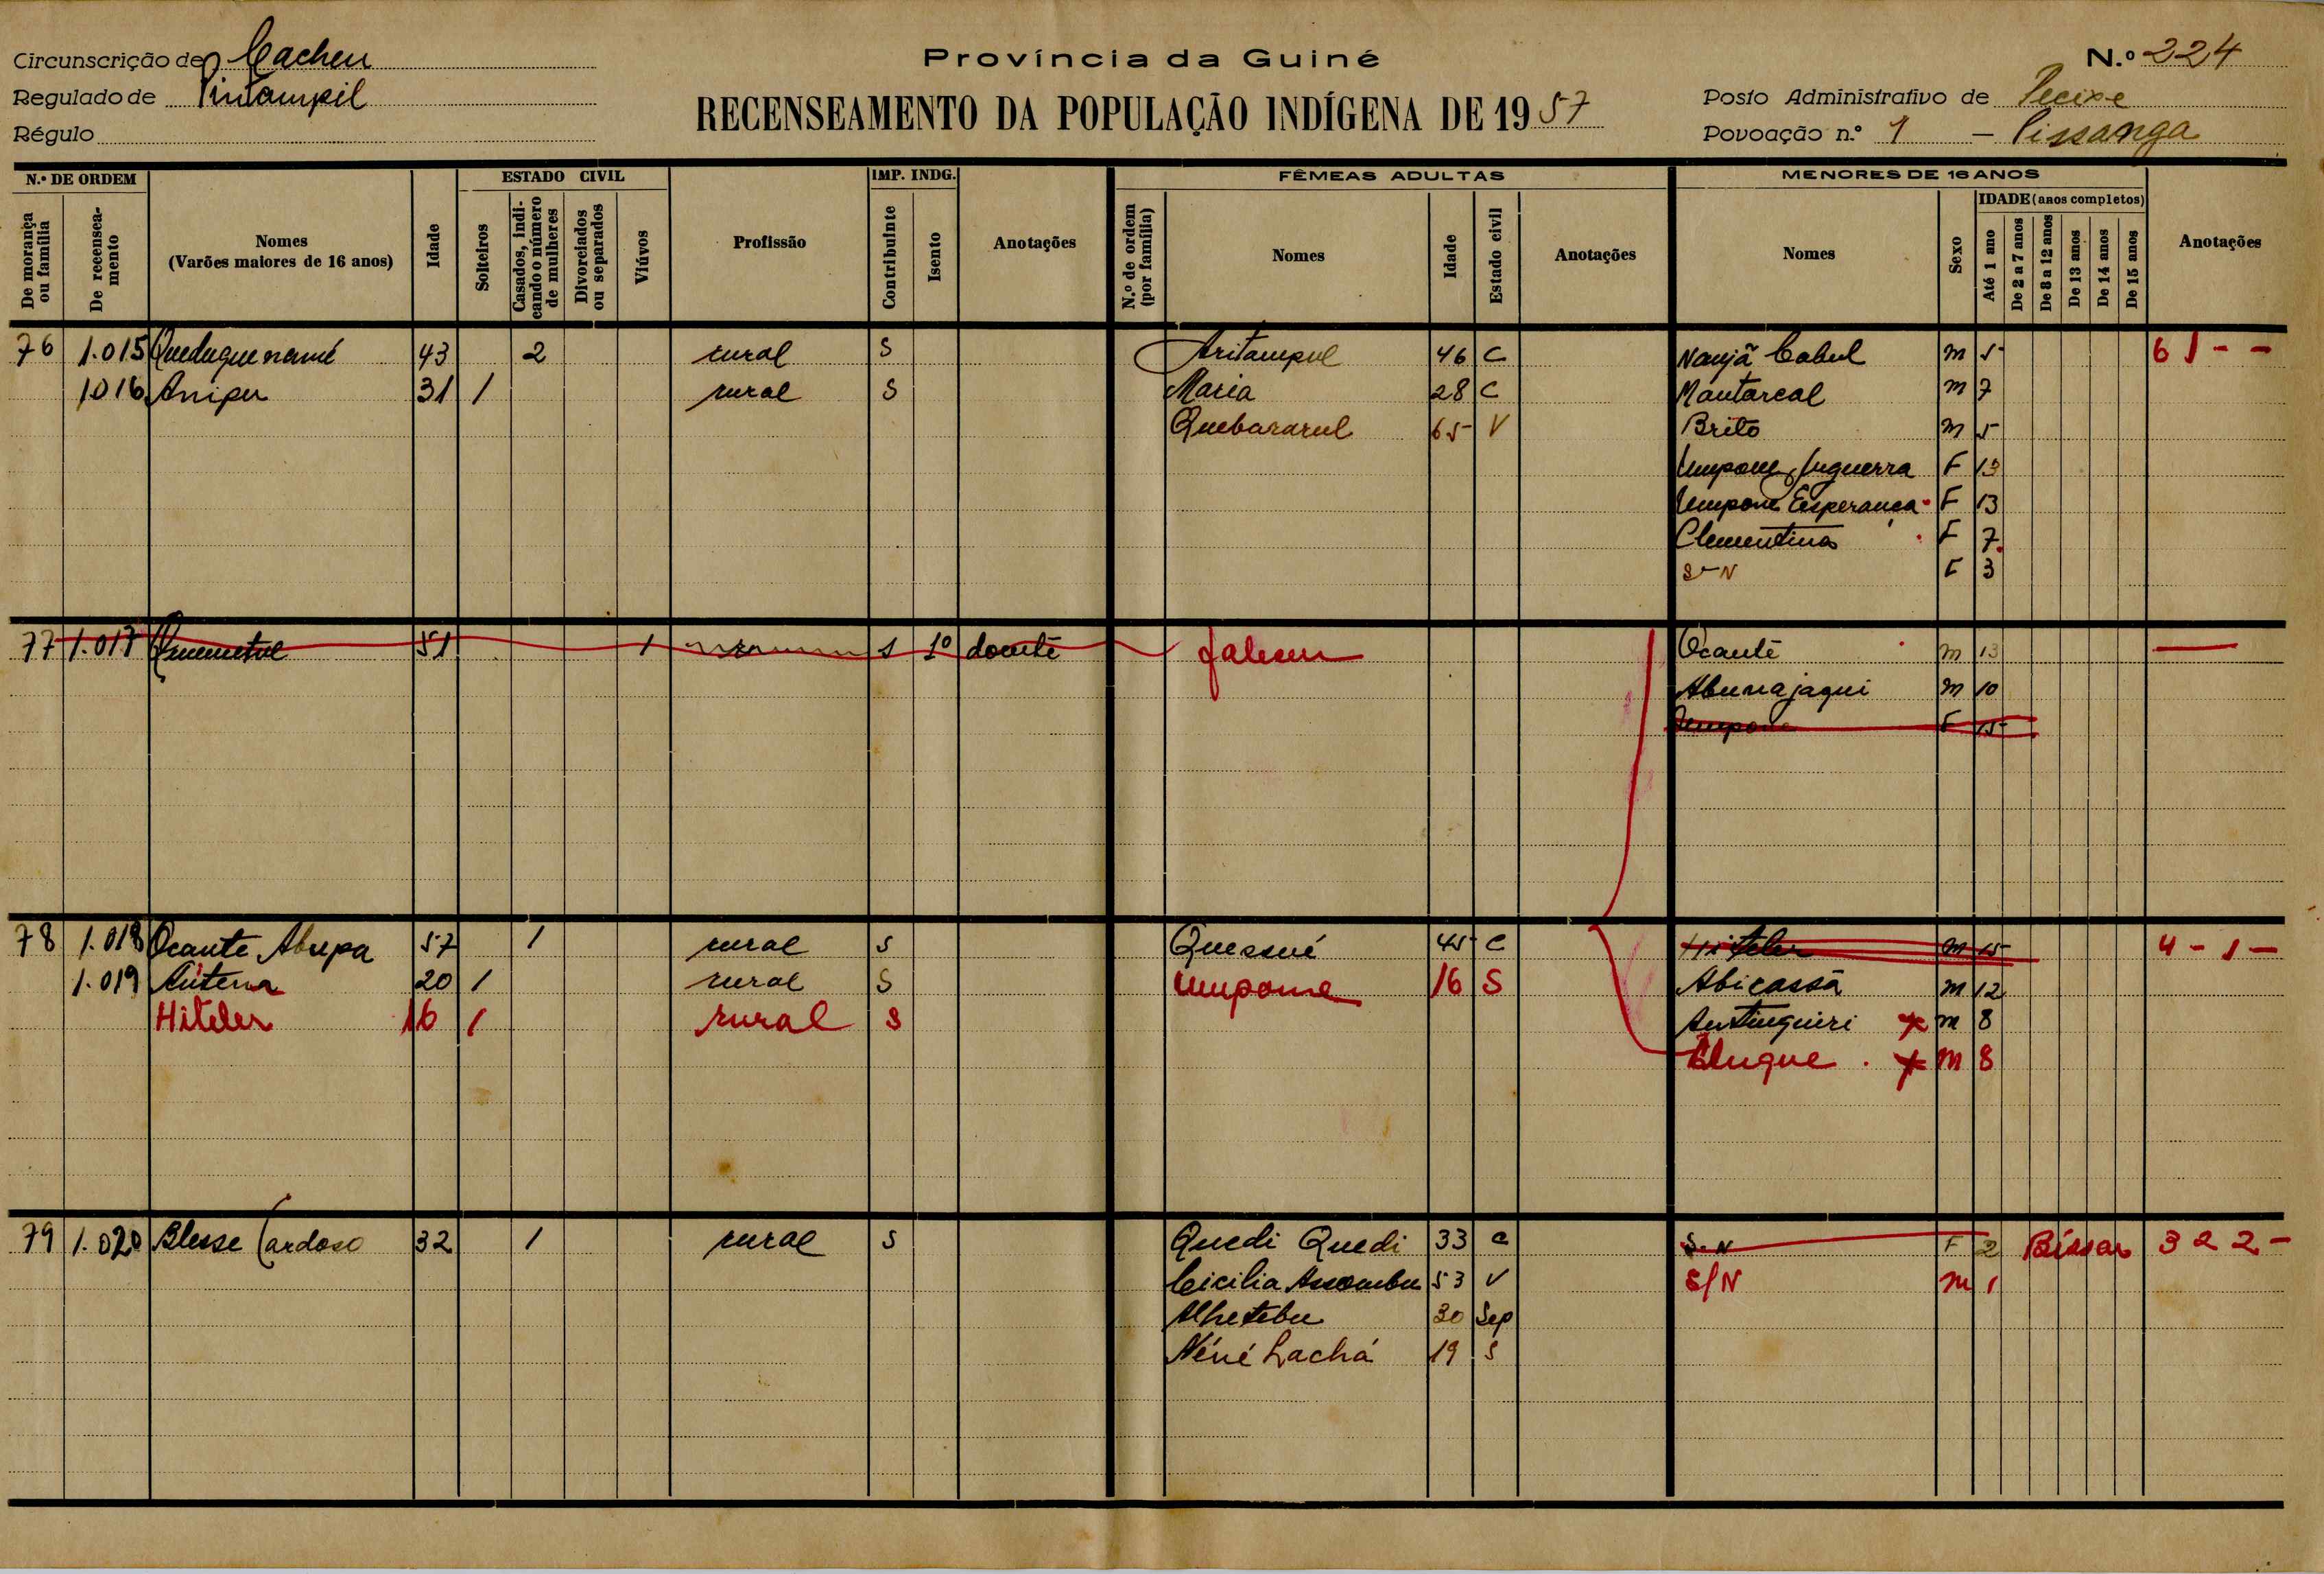 Circunscrição de Cacheu
Regulado de Pintampil
Régulo
Província da Guiné
RECENSEAMENTO DA POPULAÇÃO INDÍGENA DE 1957
N.º 224
Posto Administrativo de Pecixe
Povoação n.º 1 — Pissanga
N.º DE ORDEM
De morança ou família
De recenseamento
Nomes
(Varões maiores de 16 anos)
Idade
ESTADO CIVIL
Solteiros
Casados, indicando o número de mulheres
Divorciados ou separados
Viúvos
Profissão
IMP. INDG.
Contribuinte
Isento
Anotações
FÊMEAS ADULTAS
N.º de ordem (por família)
Nomes
Idade
Estado civil
Anotações
MENORES DE 16 ANOS
Nomes
Sexo
IDADE (anos completos)
Até 1 ano
De 2 a 7 anos
De 8 a 12 anos
De 13 anos
De 14 anos
De 15 anos
Anotações
76 1.015 43 2 rural S Aritampul 46 C Naujã Cabul m 5 6 1 - -
1016 Anipu 31 1 rural S Maria 28 C Mantarcal m 7
Quebararul 65 V Brito m 5
Umpone Juguerra F 13
Umpone Esperança F 13
Clementina F 7
S-N F 3
77 1.017 51 1 S 1º doente faleceu Ocantê m 13 —
Abunajaqui m 10
Umpone F 15
78 1.018 Ocante Abupa 57 1 rural S Quessué 45 C Hiteler m 15 4 - 1 -
1.019 Antena 20 1 rural S Umpone 16 S Abicassã m 12
Hiteler 16 1 rural S Antinguiri m 8
Blugue m 8
79 1.020 Blesse Cardoso 32 1 rural S Quedi Quedi 33 C S.N F 2 Bissau 3 2 2 -
Cicilia Assombu 53 V S/N m 1
Alhetebu 30 Sep
Néné Lachá 19 S